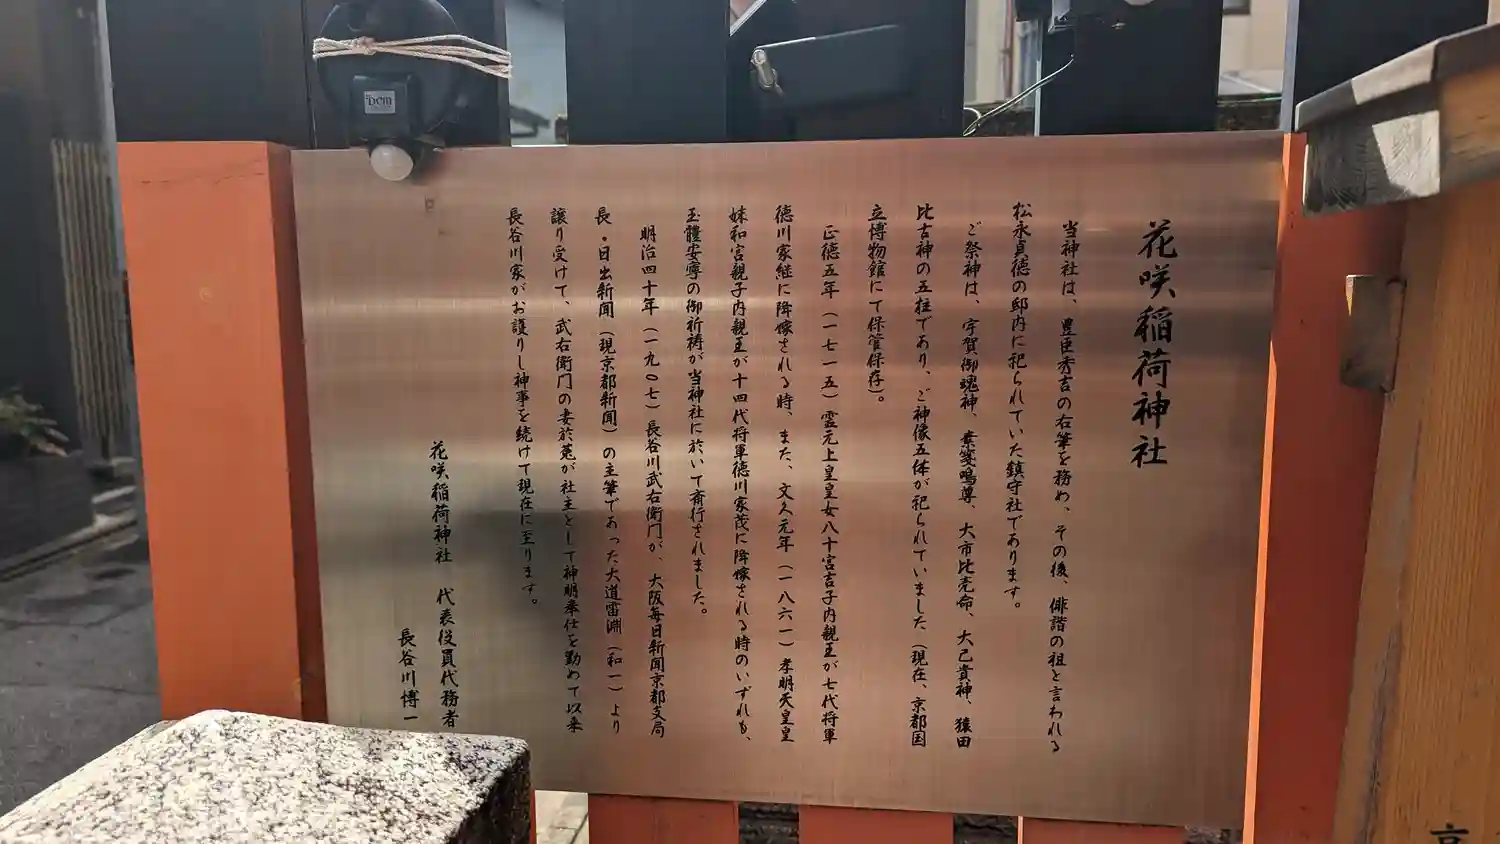 花咲稲荷神社
当神社は、豊臣秀吉の右筆を務め、その後、俳諧の祖と言われる
松永貞徳の邸内に祀られていた鎮守社であります。
ご祭神は、宇賀御魂神、素箋嗚尊、大市比売命、大己貴神、猿田
比古神の五柱であり、ご神像五体が祀られていました（現在、京都国
立博物館にて保管保存）。
正徳五年（一七一五）霊元上皇皇女八十宮吉子内親王が七代将軍
徳川家継に降嫁される時、また、文久元年（一八六一）孝明天皇皇
妹和宮親子内親王が十四代将軍徳川家茂に降嫁される時のいずれも、
玉體安寧の御祈祷が当神社に於いて斎行されました。
明治四十年（一九〇七）長谷川武右衛門が、大阪毎日新聞京都支局
長・日出新聞（現京都新聞）の主筆であった大道雷淵（和一）より
譲り受けて、武右衛門の妻於菟が社主として神明奉仕を勤めて以来
長谷川家がお護りし神事を続けて現在に至ります。
花咲稲荷神社　代表役員代務者
長谷川博一
DCM